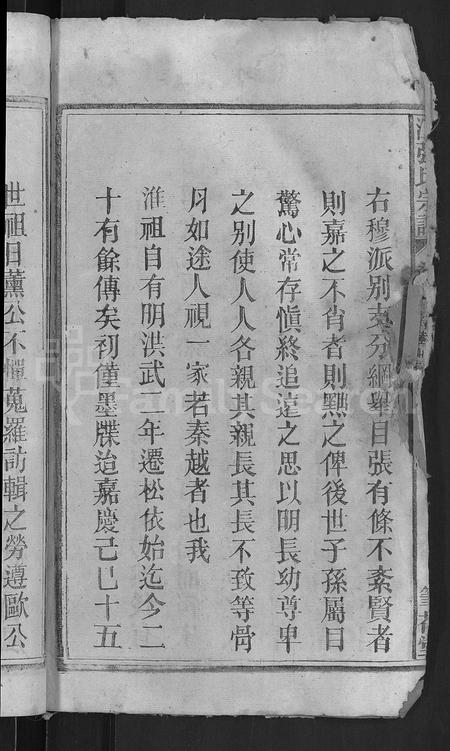 右穆派別支分綱舉目張有條不紊賢者
則嘉之不肖者則黜之俾後世子孫屬目
驚心常存愼終追遠之思以明長幼尊卑
之別使人人各親其親長其長不致等骨
月如途人視一家若秦越者也我
淮祖自有明洪武二年遷松依始迄今二
十有餘傳矣初僅墨牒迨嘉慶己巳十五
世祖日薰公不憚蒐羅訪輯之勞遵歐公
張氏宗譜
FamilySearch